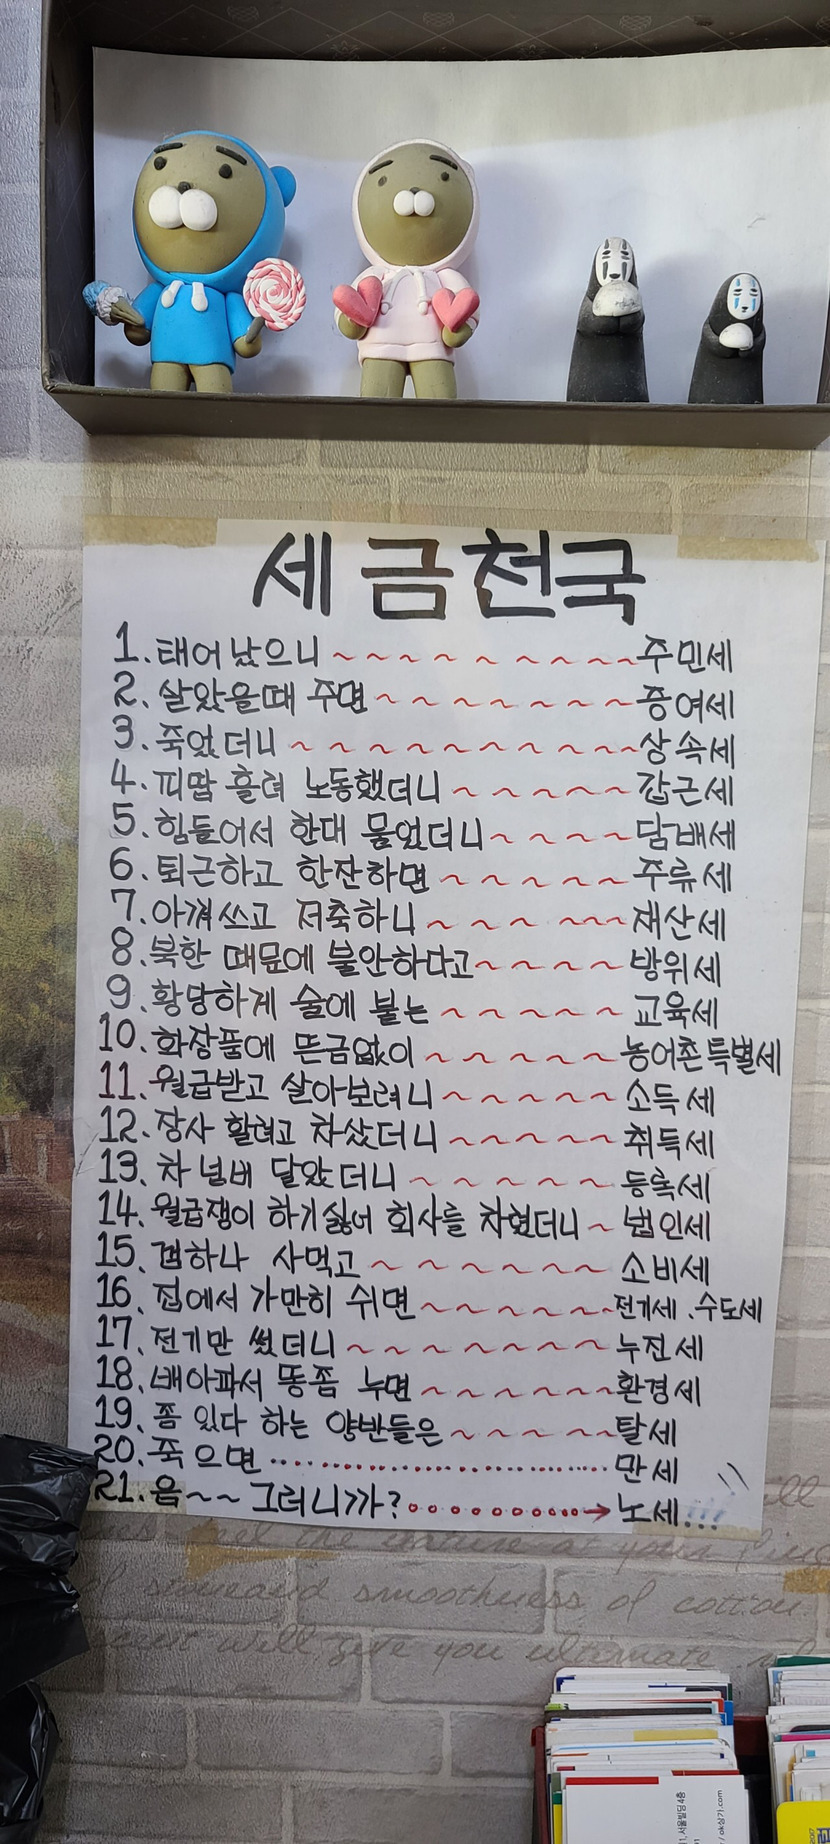 세금천국
1. 태어났으니 ~~~~~~~~~ 주민세
2. 살았을때 주면 ~~~~~~~ 증여세
3. 죽었더니 ~~~~~~~~~~ 상속세
4. 피땀 흘려 노동했더니 ~~~~~ 갑근세
5. 힘들어서 한대 물었더니 ~~~~ 담배세
6. 퇴근하고 한잔하면 ~~~~~ 주류세
7. 아껴쓰고 저축하니 ~~~ ~~~ 재산세
8. 북한 때문에 불안하다고 ~~~~ 방위세
9. 황당하게 술에 붙는 ~~~~~ 교육세
10. 화장품에 뜬금없이 ~~~~~ 농어촌특별세
11. 월급받고 살아보려니 ~~~~~ 소득세
12. 장사 할려고 차샀더니 ~~~~~ 취득세
13. 차 넘버 달았더니 ~~~~~ 등록세
14. 월급쟁이 하기싫어 회사를 차렸더니 ~ 법인세
15. 껌하나 사먹고 ~~~~~~ 소비세
16. 집에서 가만히 쉬면 ~~~~~ 전기세.수도세
17. 전기만 썼더니 ~~~~~~~ 누진세
18. 배아파서 똥좀 누면 ~~~~~ 환경세
19. 좀 있다 하는 양반들은 ~~~~~ 탈세
20. 죽으면 ························ 만세
21. 음~~ 그러니까? ············→ 노세...
will
the nature at your fing
of stoneand smoothness of cotton.
will give you ultimate
서울빌딩 4층
/ ok상가.com